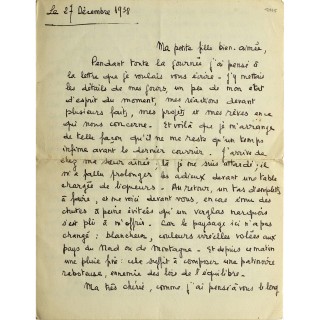 Le 27 Décembre 1938
Ma petite fille bien-aimée,
Pendant toute la journée j'ai pensé à
la lettre que je voulais vous écrire. J'y mettais
les détails de mes jours, un peu de mon état
d'esprit du moment, mes réactions devant
plusieurs faits, mes projets et mes rêves en ce
qui nous concerne. Et voilà que je m'arrange
de telle façon qu'il ne me reste qu'un temps
infime avant le dernier courrier. J'arrive de
chez ma sœur aînée. Là je me suis attardé : il
m'a fallu prolonger les adieux devant une table
chargée de liqueurs. Au retour, un tas d'emplettes
à faire, et me voici devant vous, encore ému des
chutes à peine évitées qu'un verglas narquois
s'est plu à m'offrir. Car le paysage ici n'a pas
changé : blancheur, couleurs irréelles volées aux
pays du Nord ou de Montagne. Et depuis ce matin
une pluie fine : cela suffit à composer une patinoire
raboteuse, ennemie des lois de l'équilibre.
Ma très chérie, comme j'ai pensé à vous le long